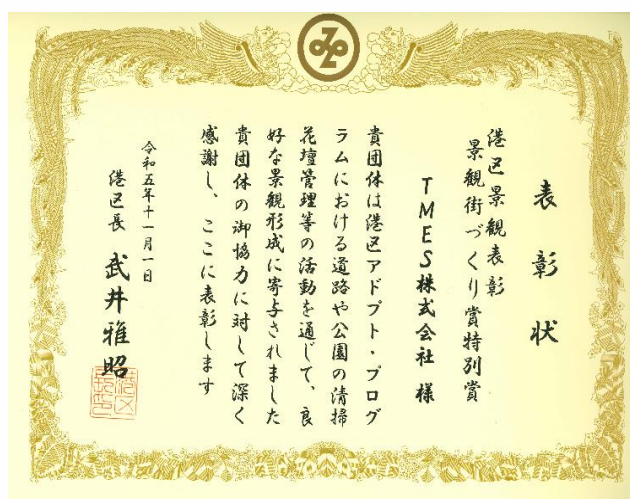 表彰状
港区景観表彰
景観街づくり賞特別賞
TMES株式会社 様
貴団体は港区アドプト・プログ
ラムにおける道路や公園の清掃
花壇管理等の活動を通じて、良
好な景観形成に寄与されました
貴団体の御協力に対して深く
感謝し、ここに表彰します
令和五年十一月一日
港区長 武井雅昭